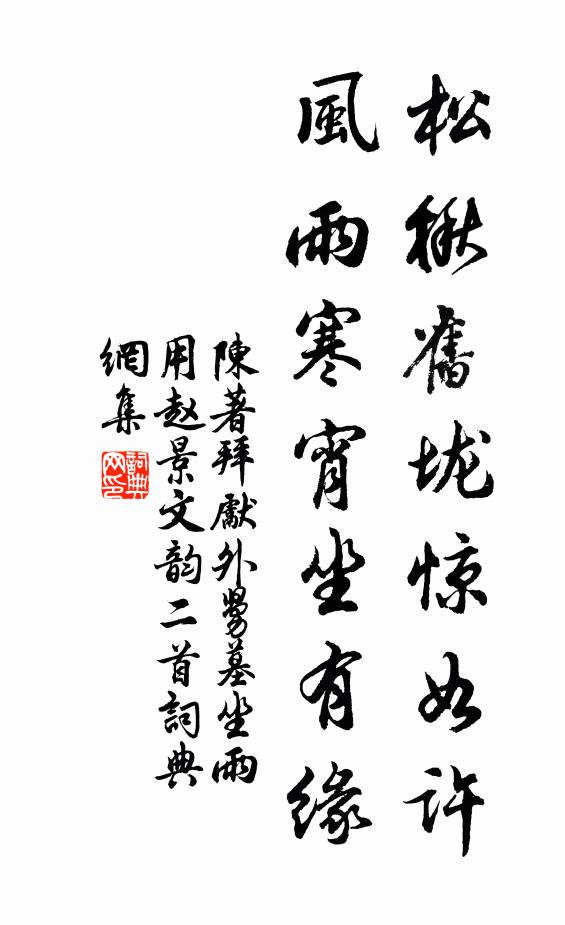 松楸舊垅惊如许
風雨寒宵坐有缘
陳著拜獻外舅墓坐雨
用赵景文韵二首詞典
網集
詞典网印